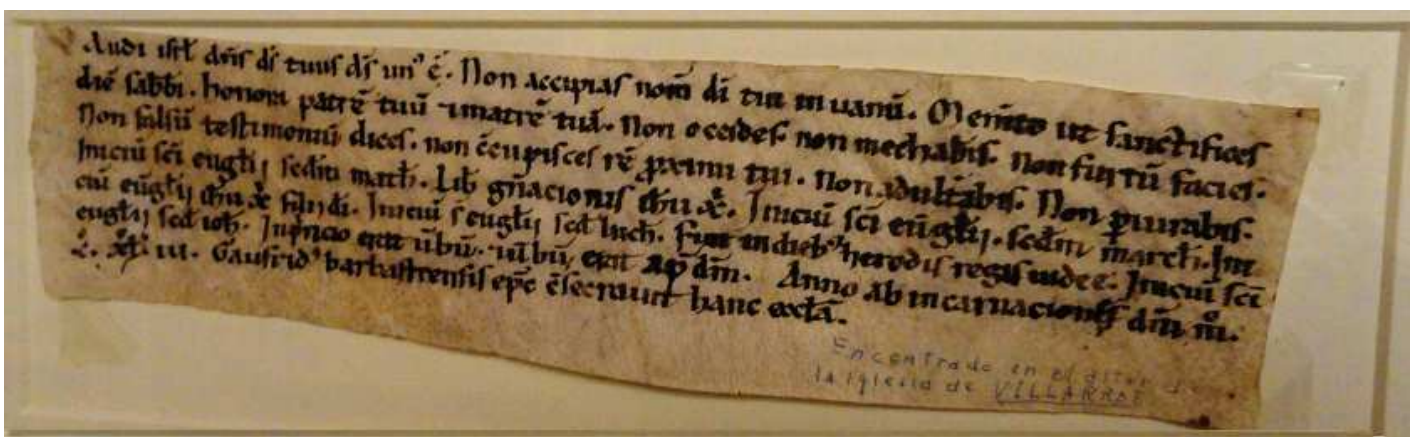 Audi isrł dn̄s dī tuus dī un' ē. Non accipias nom̄ dī tui in uanū. Mem̄to ut sanctifices
diē sabbi. honora patrē tuū ⁊ matrē tuā. Non occides. non mechabis. Non furtū facies.
Non falsū testimoniū dices. non c̄cupisces rē ꝓximi tui. Non adult̄abis. Non ꝑiurabis.
Iniciū sc̄i euḡlij sed̄m math̄. Lib̄ gn̄acionis ih̄u xp̄i. Iniciū sc̄i eūḡlij. sed̄m march̄. Ini
ciū eūḡlij ih̄u xp̄i filij dī. Iniciū s̄ euḡlij sed̄ luch̄. Fuit in dieb' herodis regis iudee. Iniciū sc̄i
euḡlij sed̄ ioh̄. In pⁱncipio erat ūbū. ⁊ ūbū erat ap̄ dm̄. Anno ab incarnacione dn̄i mº.
cº. xlº. iii. Gaufrid' barbastrensis ep̄c c̄secrauit hanc eccl̄ā.
Encontrado en el altar de
la iglesia de VILLARRUE